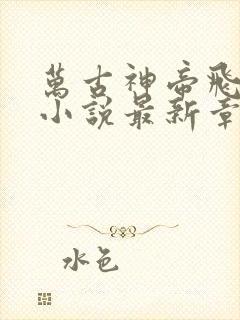 萬古神帝飛
小說最新章
水色